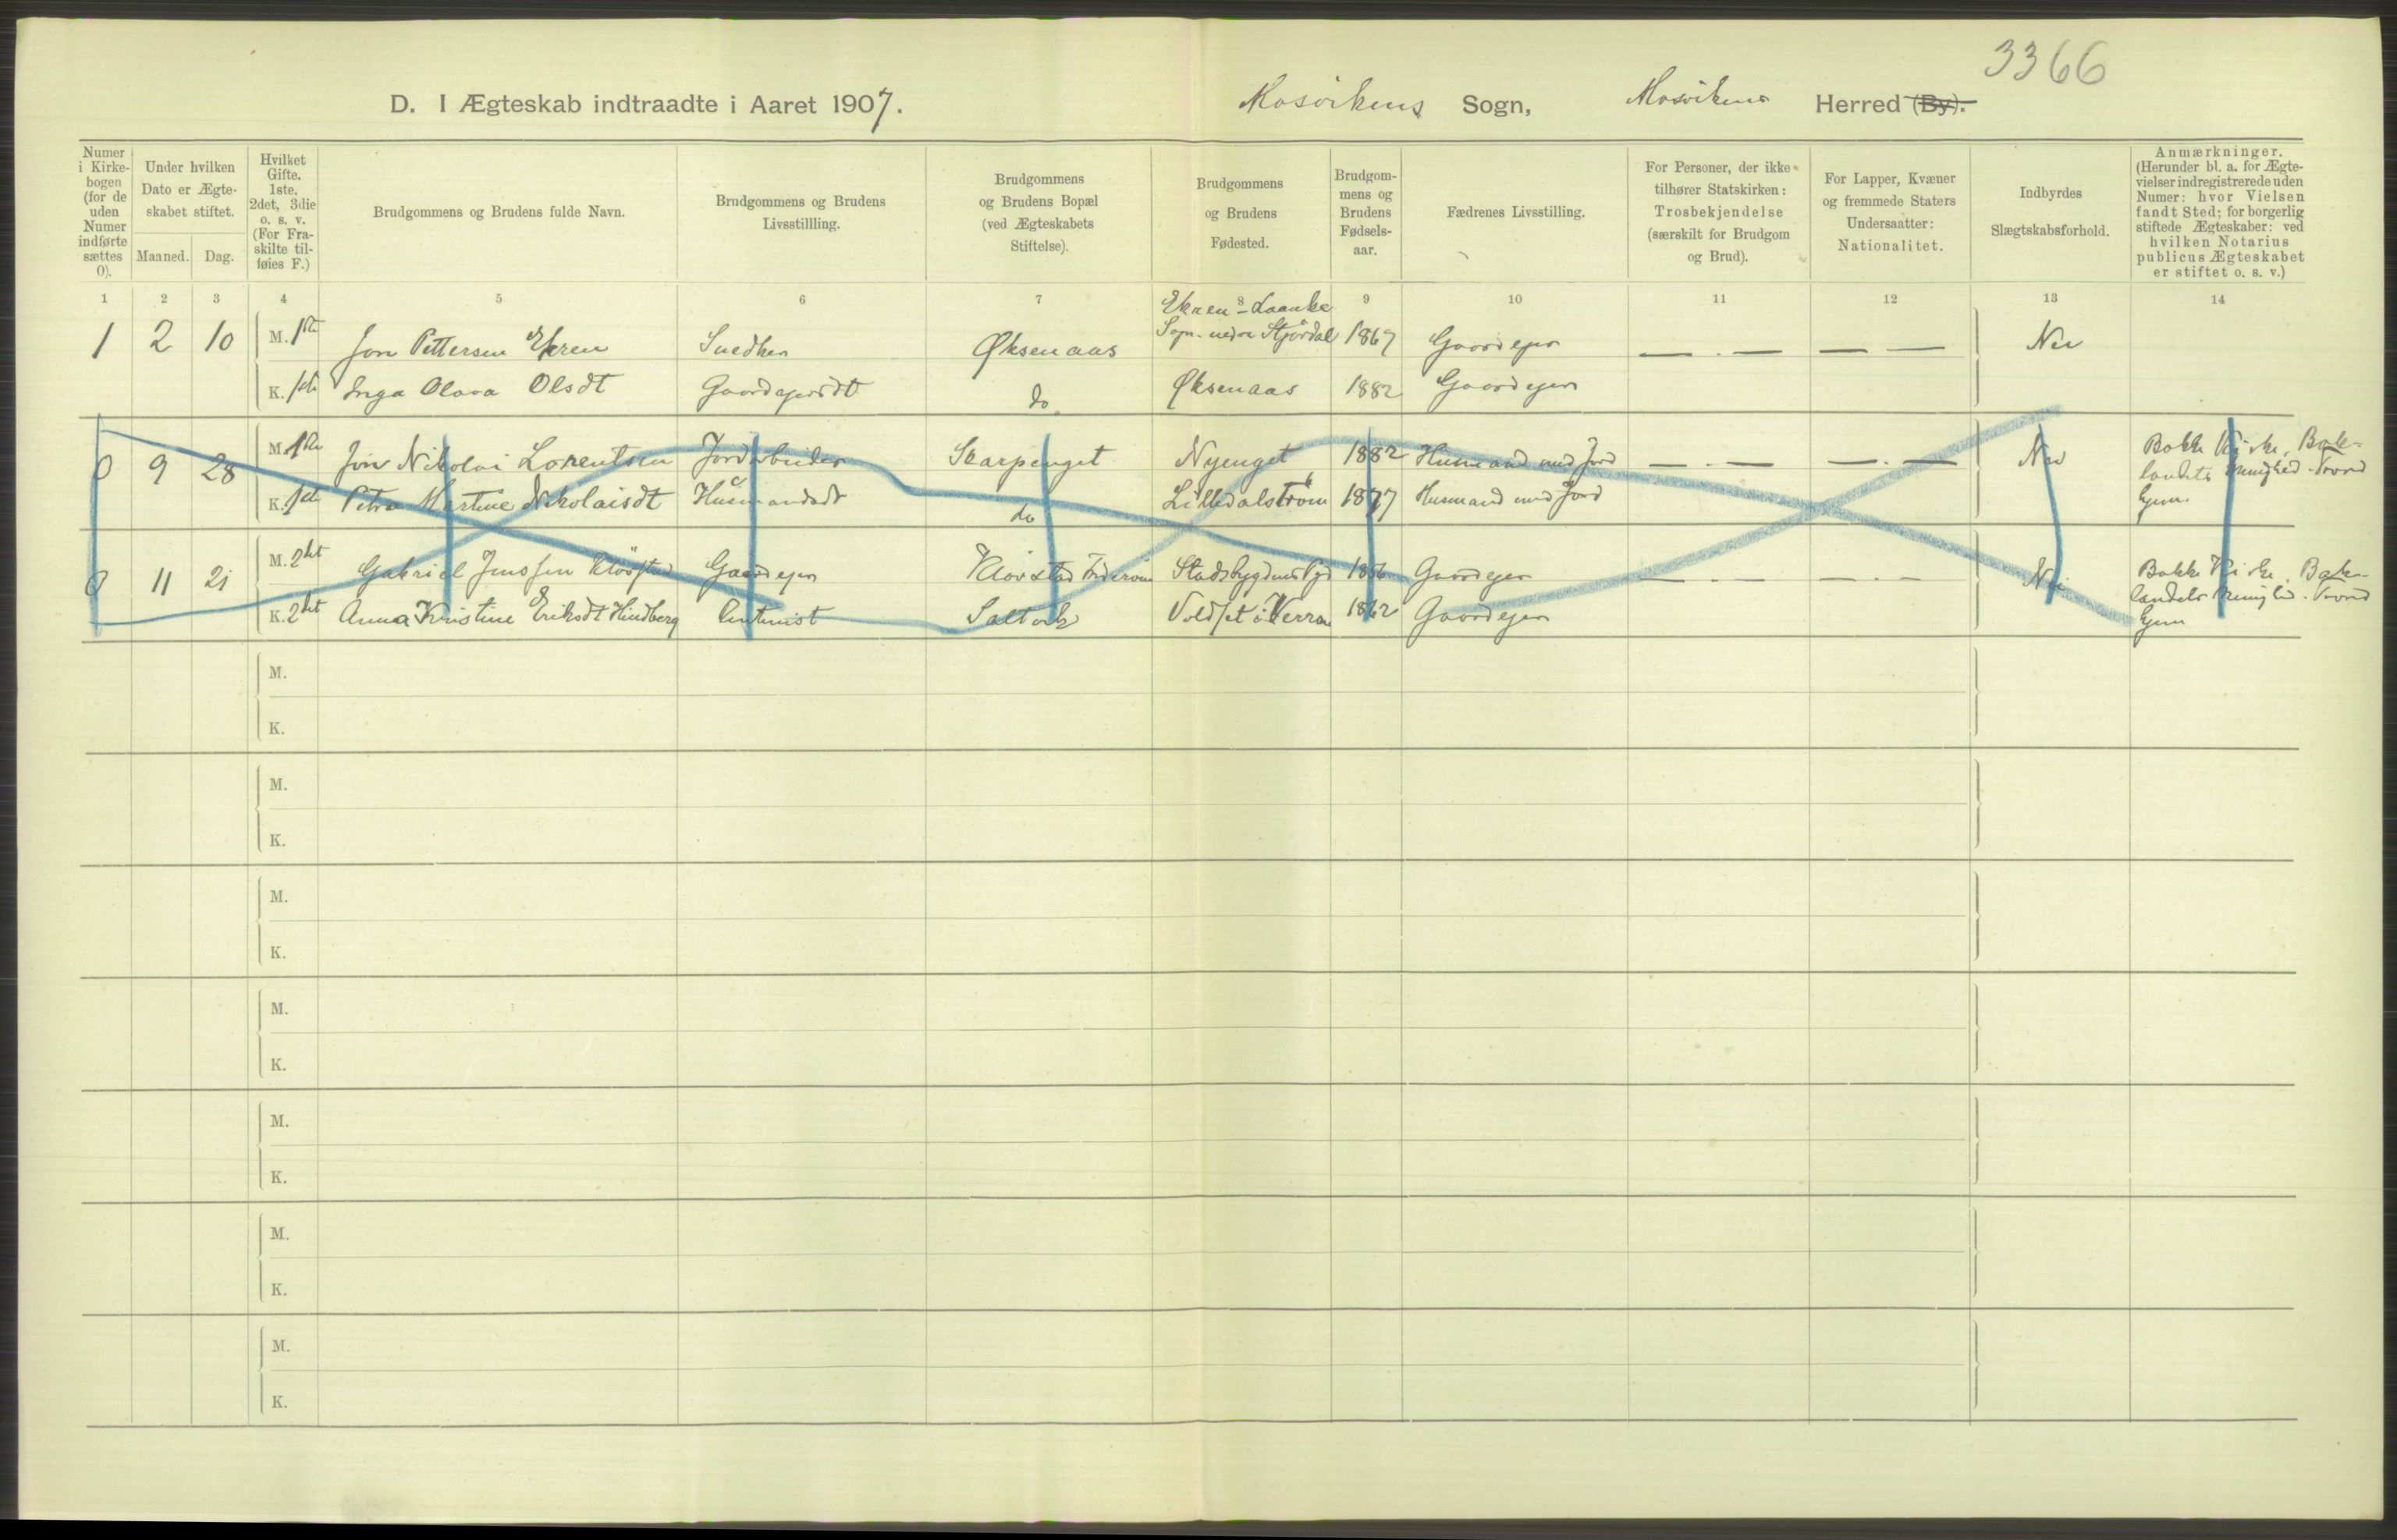 3366
D. I Ægteskab indtraadte i Aaret 1907. Mosvikens Sogn, Mosvikens Herred (By).
Numer i Kirkebogen (for de uden Numer indførte sættes 0).
Under hvilken Dato er Ægteskabet stiftet.
Maaned. Dag.
Hvilket Gifte. 1ste, 2det, 3die o. s. v. (For Fraskilte tilføies F.)
Brudgommens og Brudens fulde Navn.
Brudgommens og Brudens Livsstillling.
Brudgommens og Brudens Bopæl (ved Ægteskabets Stiftelse).
Brudgommens og Brudens Fødested.
Brudgommens og Brudens Fødselsaar.
Fædrenes Livsstilling.
For Personer, der ikke tilhører Statskirken: Trosbekjendelse (særskilt for Brudgom og Brud).
For Lapper, Kvæner og fremmede Staters Undersaatter: Nationalitet.
Indbyrdes Slægtskabsforhold.
Anmærkninger. (Herunder bl. a. for Ægtevielser indregistrerede uden Numer: hvor Vielsen fandt Sted; for borgerlig stiftede Ægteskaber: ved hvilken Notarius publicus Ægteskabet er stiftet o. s. v.)
1 2 3 4 5 6 7 8 9 10 11 12 13 14
Ekren - Laanke
1 2 10 M. 1ste Jon Pettersen Ekren Snedker Øksenaas Sogn. nedre Stjørdal 1869 Gaardejer — . — — — Nei
K. 1ste Inga Olava Olsdt Gaardejersdt do Øksenaas 1882 Gaardejer
0 9 28 M. 1ste Jon Nikolai Lorentsen Jordarbeider Skarpenget Nyenget 1882 Husmand med Jord — . — — . — Nei Bakke Kirke, Bak-
landets Menighed. Trond
hjem.
K. 1ste Petra Martine Nikolaisdt Husmandsdt do Lilledalstrøm 1877 Husmand med Jord
0 11 21 M. 2det Gabriel Jenssen Kløvstad Gaardejer Kløvstad 1856 Gaardejer — . — — . — Nei Bakke Kirke. Bak-
landets Menighed. Trond
hjem
K. 2det Anna Kristine Eriksdt Hindberg Saltvik Voldset i Verran 1862 Gaardejer
M.
K.
M.
K.
M.
K.
M.
K.
M.
K.
M.
K.
M.
K.